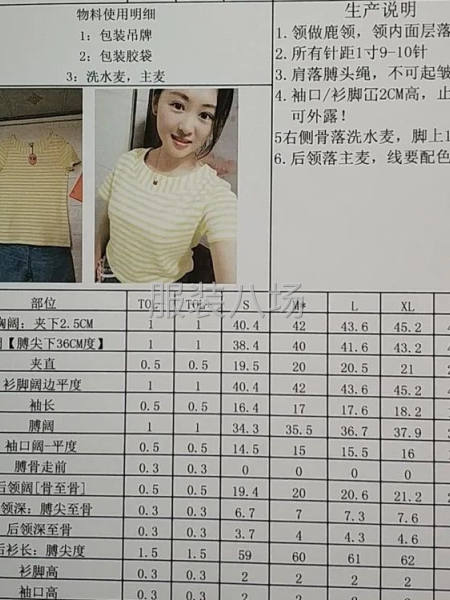 物料使用明细
1：包装吊牌
2：包装胶袋
3：洗水麦，主麦
生产说明
1.领做鹿领，领内面层落
2.所有针距1寸9-10针
3.肩落膊头绳，不可起皱
4.袖口/衫脚冚2CM高，止
可外露！
5右侧骨落洗水麦，脚上1
6.后领落主麦，线要配色
服装八场
部位 TOL- TOL+ S M* L XL
胸阔：夹下2.5CM 1 1 40.4 42 43.6 45.2
【膊尖下36CM度】 1 1 38.4 40 41.6 43.2
夹直 0.5 0.5 19.5 20 20.5 21
衫脚阔边平度 1 1 40.4 42 43.6 45.2
袖长 0.5 0.5 16.4 17 17.6 18.2
膊阔 1 1 34.3 35.5 36.7 37.9
袖口阔-平度 0.5 0.5 14.5 15 15.5 16
膊骨走前 0.3 0.3 0 0 0 0
后领阔[骨至骨] 0.5 0.5 19.4 20 20.6 21.2
领深：膊尖至骨 0.3 0.3 6.7 7 7.3 7.6
后领深至骨 0.3 0.3 3.7 4 4.3 4.6
后衫长：膊尖度 1.5 1.5 59 60 61 62
衫脚高 0.3 0.3 2 2 2 2
袖口高 0.3 0.3 2 2 2 2